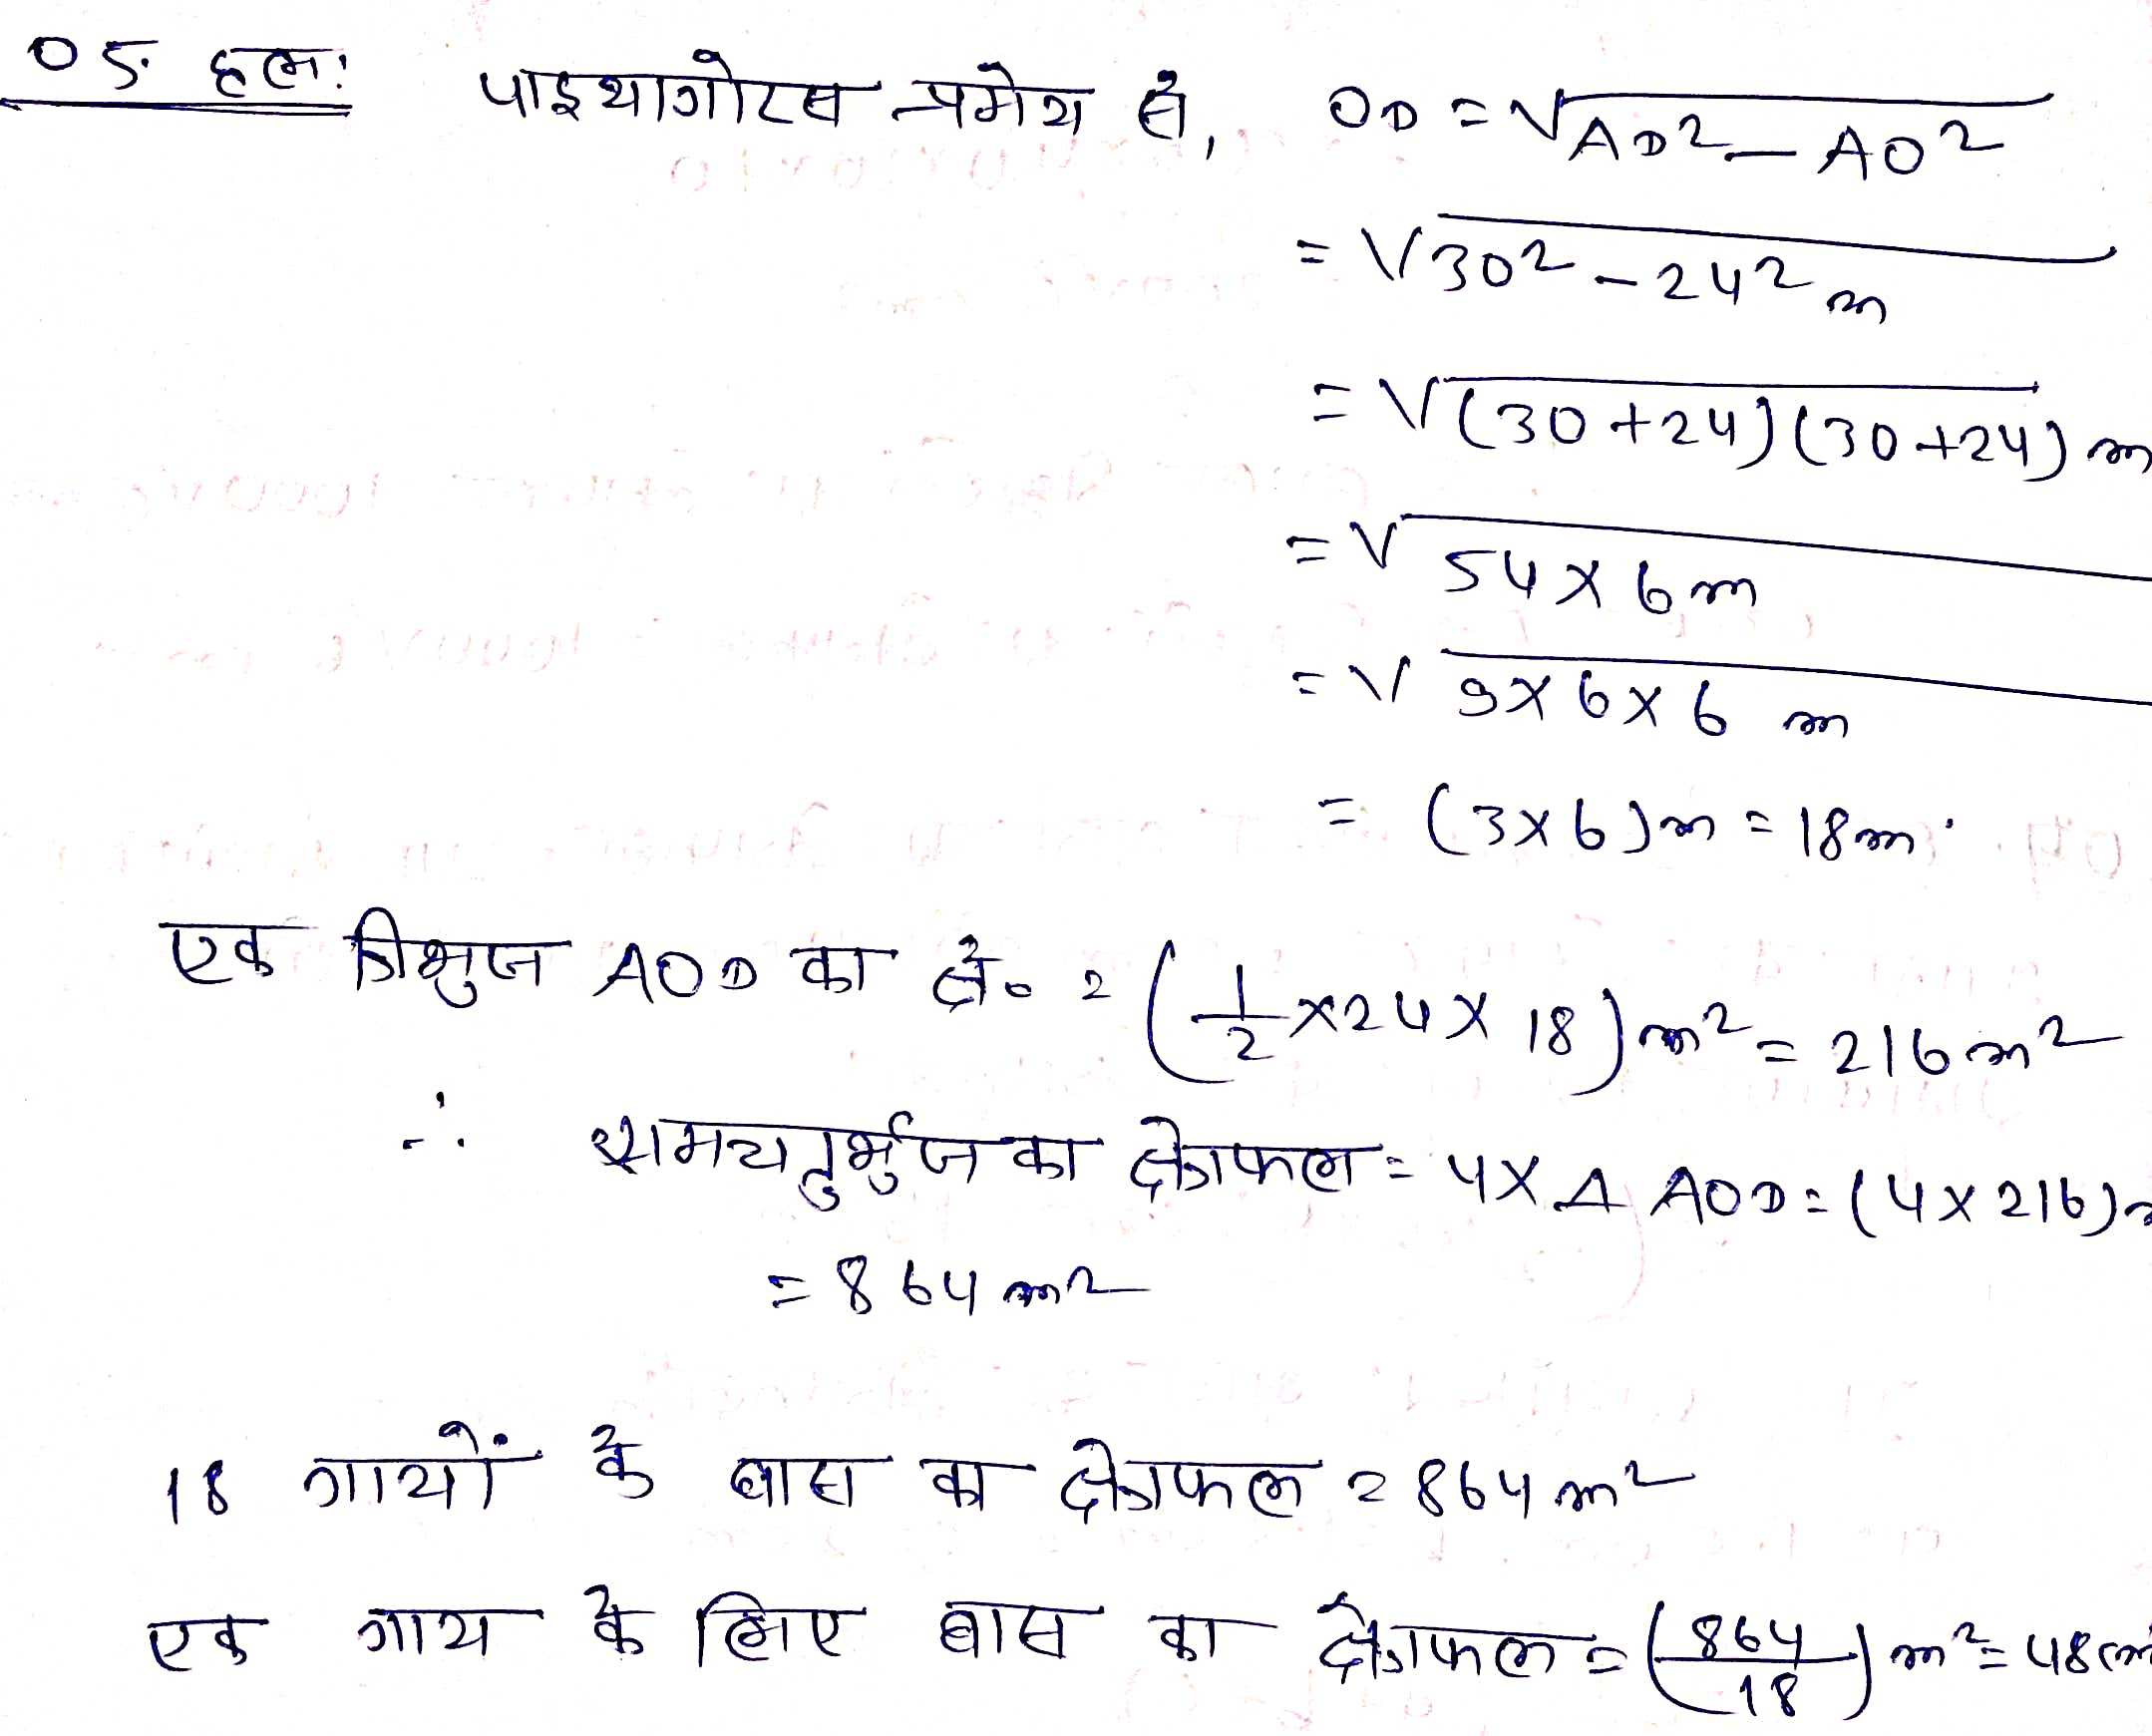 05. हल: पाइथागोरस प्रमेय से, OD = √AD² - AO²
= √30² - 24² m
= √(30+24)(30+24) m
= √54 x 6 m
= √9 x 6 x 6 m
= (3 x 6) m = 18 m.
एक त्रिभुज AOD का क्षे० = (1/2 x 24 x 18) m² = 216 m²
∴ समचतुर्भुज का क्षेत्रफल = 4 x Δ AOD = (4 x 216)
= 864 m²
18 गायों के घास का क्षेत्रफल = 864 m²
एक गाय के लिए घास का क्षेत्रफल = (864/18) m² = 48